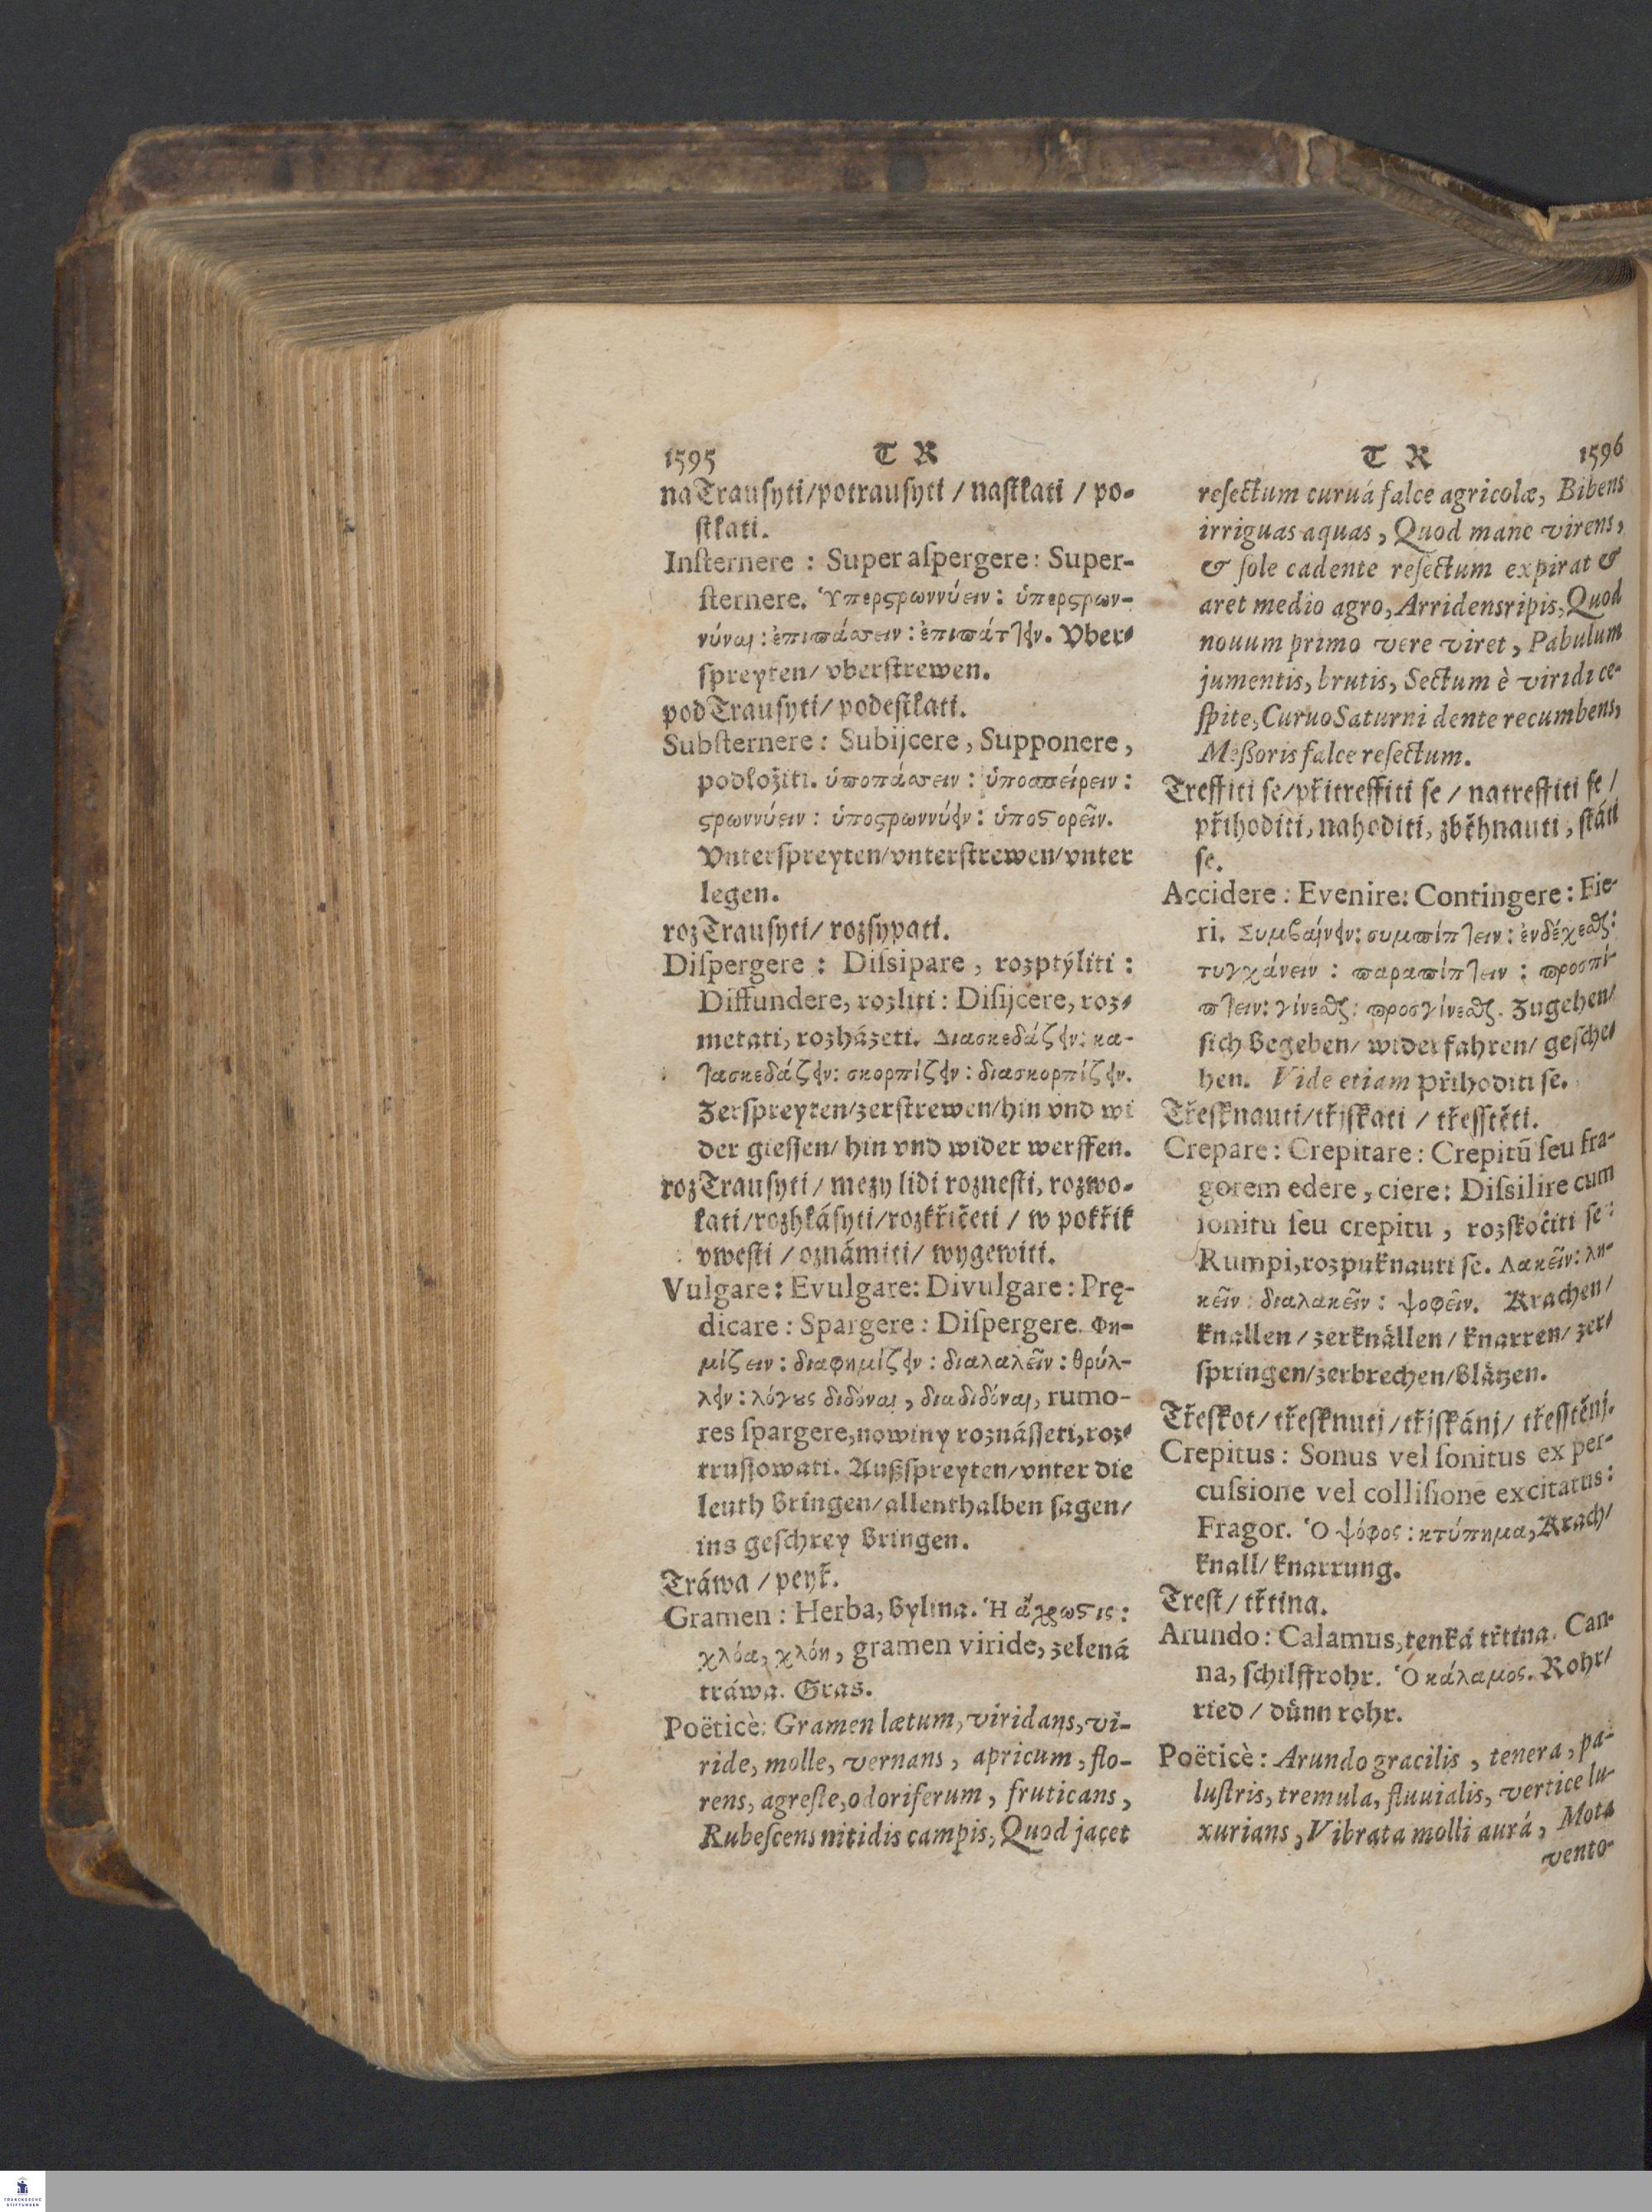 1595 T R
naTrausyti/potrausyti / nastlati / po-
stlati.
Insternere : Super aspergere: Super-
sternere. Ὑπερστρωννύειν: ὑπερστρων-
νύναι: ἐπιπάσσειν: ἐπιπάττειν. Vber-
spreyten/ vberstrewen.
podTrausyti/ podestlati.
Substernere: Subijcere, Supponere,
podložiti. ὑποπάσσειν: ὑποσπείρειν:
στρωννύειν: ὑποστρωννύειν: ὑποστορεῖν.
Vnterspreyten/vnterstrewen/vnter
legen.
rozTrausyti/ rozsypati.
Dispergere: Dissipare, rozptýliti:
Diffundere, rozliti: Disijcere, roz-
metati, rozházeti. Διασκεδάζειν: κα-
τασκεδάζειν: σκορπίζειν: διασκορπίζειν.
Zerspreyten/zerstrewen/hin vnd wi
der giessen/ hin vnd wider werffen.
rozTrausyti/ mezy lidi roznesti, rozwo-
lati/rozhlásyti/rozkřičeti / w pokřik
vwesti / oznámiti/ wygewiti.
Vulgare: Evulgare: Divulgare: Prę-
dicare: Spargere: Dispergere. Φη-
μίζειν: διαφημίζειν: διαλαλεῖν: θρύλ-
λειν: λόγους διδόναι, διαδιδόναι, rumo-
res spargere, nowiny roznásseti, roz-
trussowati. Außspreyten/vnter die
leuth bringen/allenthalben sagen/
ins geschrey bringen.
Tráwa / peyř.
Gramen: Herba, bylina. Ἡ ἄγρωστις:
χλόα, χλόη, gramen viride, zelená
tráwa. Gras.
Poëticè: Gramen lætum, viridans, vi-
ride, molle, vernans, apricum, flo-
rens, agreste, odoriferum, fruticans,
Rubescens nitidis campis, Quod jacet
T R 1596
resectum curuá falce agricolæ, Bibens
irriguas aquas, Quod mane virens,
& sole cadente resectum expirat &
aret medio agro, Arridens ripis, Quod
nouum primo vere viret, Pabulum
jumentis, brutis, Sectum è viridi ce-
spite, Curuo Saturni dente recumbens,
Meßoris falce resectum.
Treffiti se/přitreffiti se / natreffiti se /
přihoditi, nahoditi, zběhnauti, státi
se.
Accidere: Evenire: Contingere: Fie-
ri. Συμβαίνειν: συμπίπτειν: ἐνδέχεσθαι:
τυγχάνειν: παραπίπτειν: προσπί-
πτειν: γίνεσθαι: προσγίνεσθαι. Zugehen/
sich begeben/ widerfahren/ gesche-
hen. Vide etiam přihoditi se.
Třesknauti/třjskati / třesstěti.
Crepare: Crepitare: Crepitũ seu fra-
gorem edere, ciere: Dissilire cum
sonitu seu crepitu, rozskočiti se:
Rumpi, rozpuknauti se. Λακεῖν: λη-
κεῖν: διαλακεῖν: ψοφεῖν. Krachen/
knallen / zerknällen / knarren/ zer-
springen/zerbrechen/blätzen.
Třeskot/ třesknutj /třjskánj/ třesstěnj.
Crepitus: Sonus vel sonitus ex per-
cussione vel collisione excitatus:
Fragor. Ὁ ψόφος: κτύπημα, Krach/
knall/ knarrung.
Trest/ třtina.
Arundo: Calamus, tenká třtina. Can-
na, schilffrohr. Ὁ κάλαμος. Rohr/
ried / dünn rohr.
Poëticè: Arundo gracilis, tenera, pa-
lustris, tremula, fluuialis, vertice lu-
xurians, Vibrata molli aurá, Mota
vento-
FRANCKESCHE
STIFTUNGEN